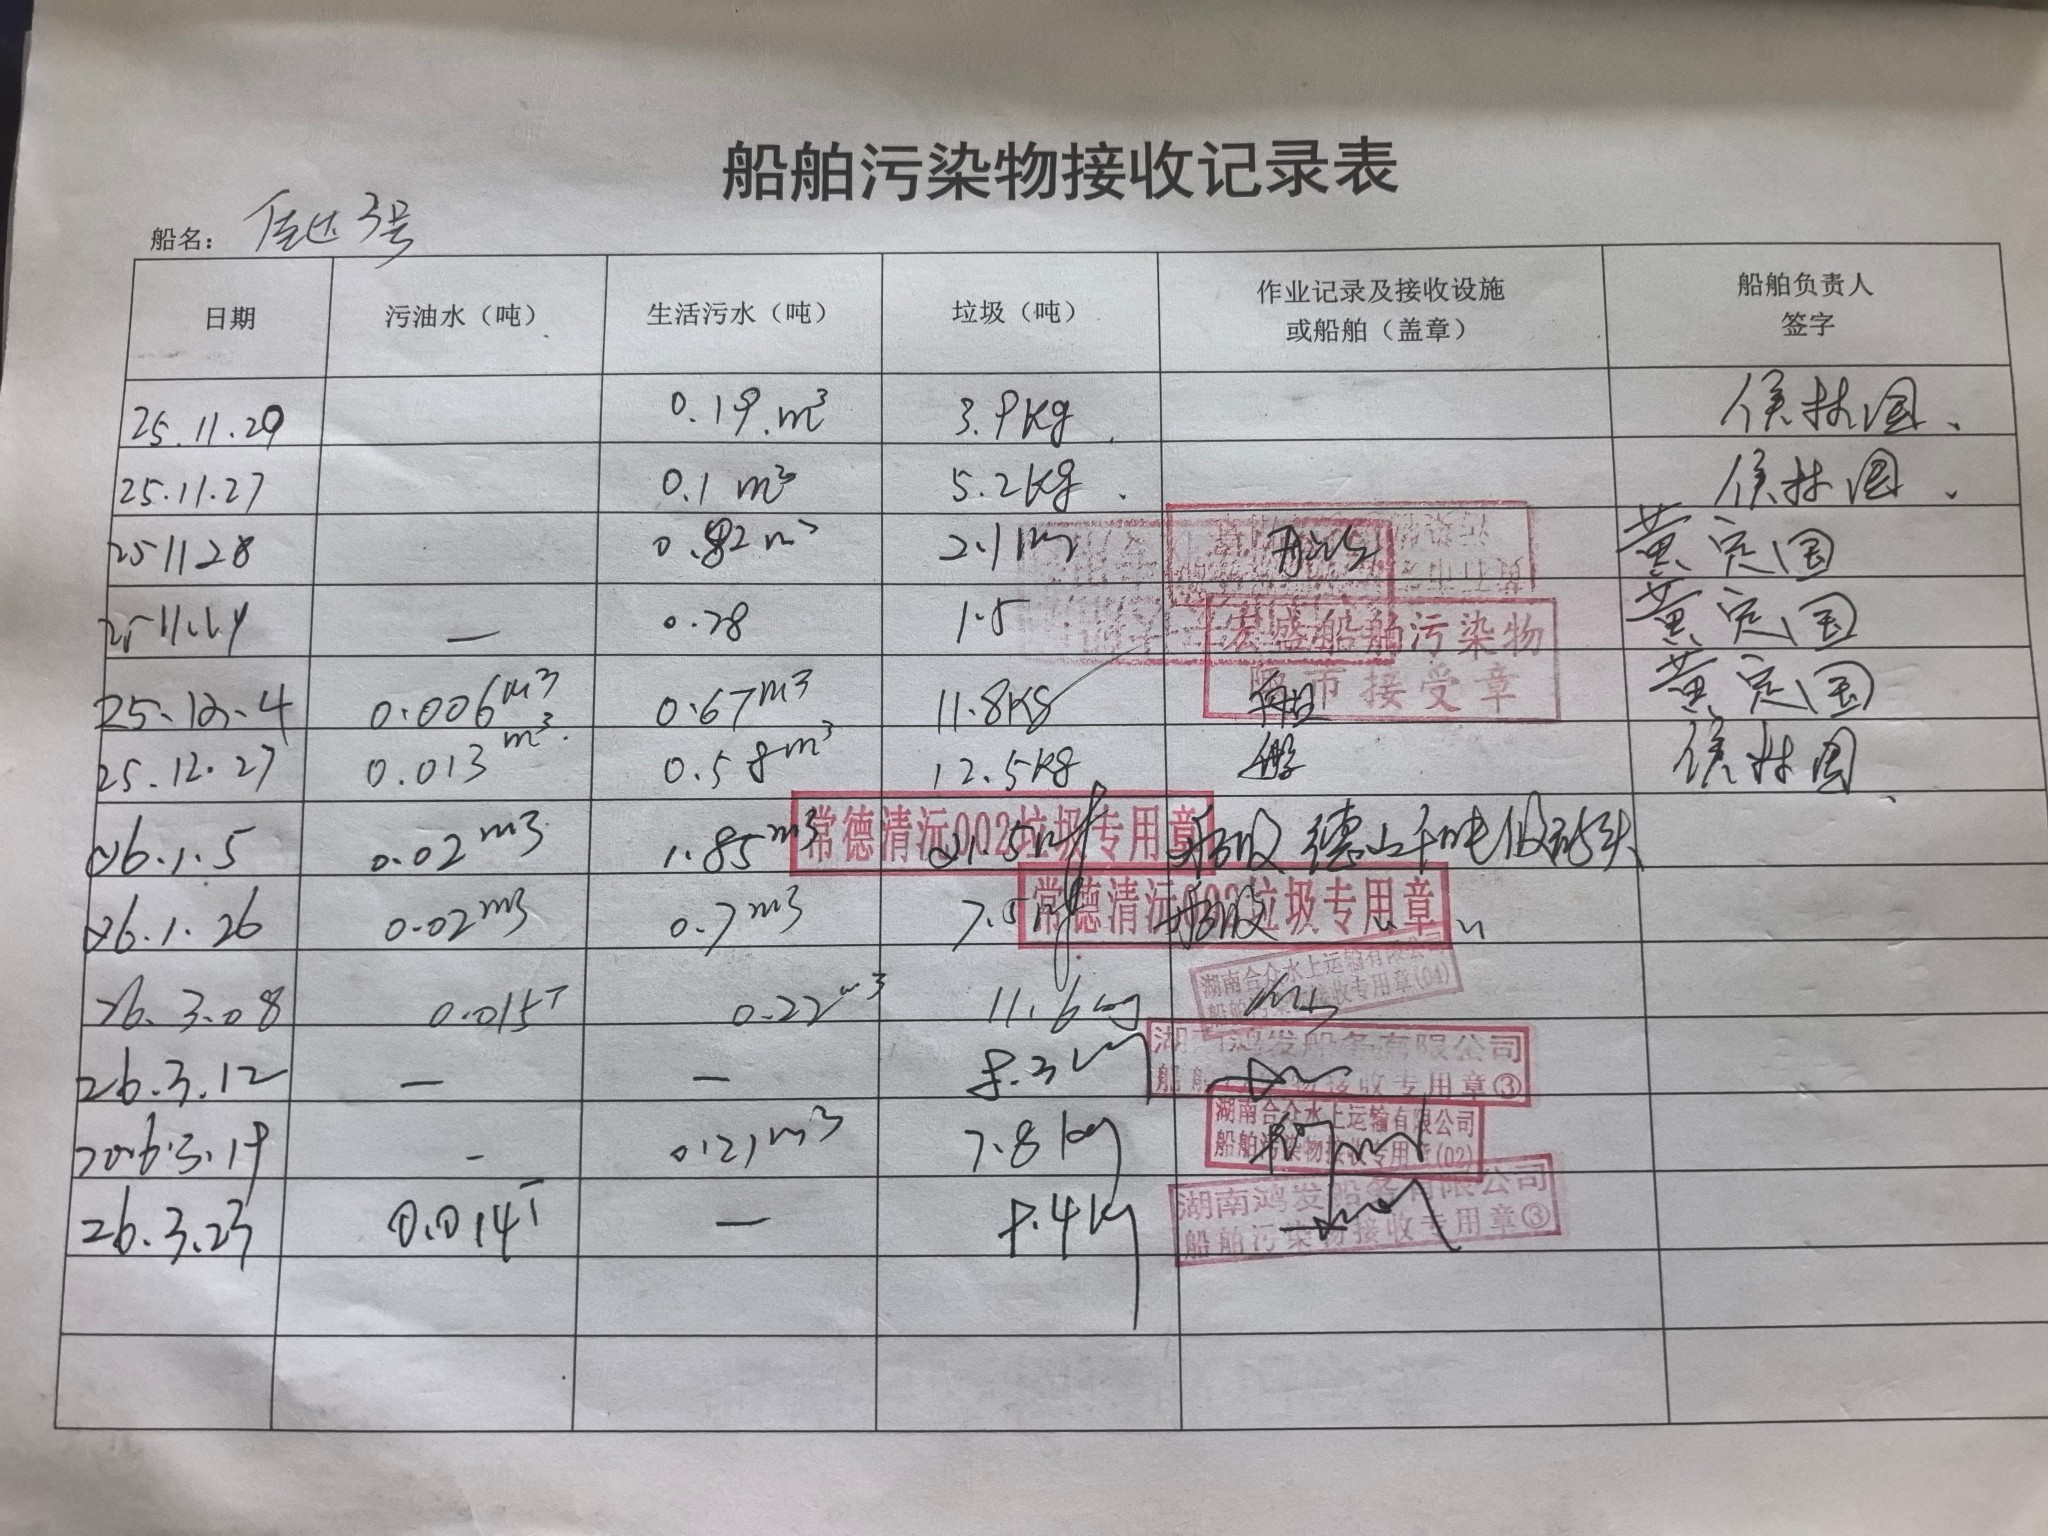 船舶污染物接收记录表
船名： 3号
日期 污油水（吨） 生活污水（吨） 垃圾（吨） 作业记录及接收设施或船舶（盖章） 船舶负责人签字
25.11.20 0.19.m³ 3.9kg 侯林国.
25.11.27 0.1 m³ 5.2kg. 侯林国.
25 11 28 m³ 2.1 黄定国
— 0.28 1.5 宏盛船舶污染物 黄定国
25.12.4 0.006m³ 0.67m³ 11.8KG 市接受章 黄定国
25.12.27 0.013m³. 0.58m³ 12.5kg 侯林国
26.1.5 0.02m³ 1.85m³ 常德清沅002垃圾专用章 21.5 德山千吨级码头
26.1.26 0.02m³ 0.7m³ 7.5 常德清沅002垃圾专用章 〃
26.3.08 0.015T 0.22m³ 11.6kg 湖南合众水上运输有限公司
船舶污染物接收专用章(04)
26.3.12 — — 8.3 湖南鸿发船务有限公司
船舶污染物接收专用章③
2026.3.19 - 0.21m³ 7.8kg 湖南合众水上运输有限公司
船舶污染物接收专用章(02)
26.3.23 0.014T — 8.4kg 湖南鸿发船务有限公司
船舶污染物接收专用章③